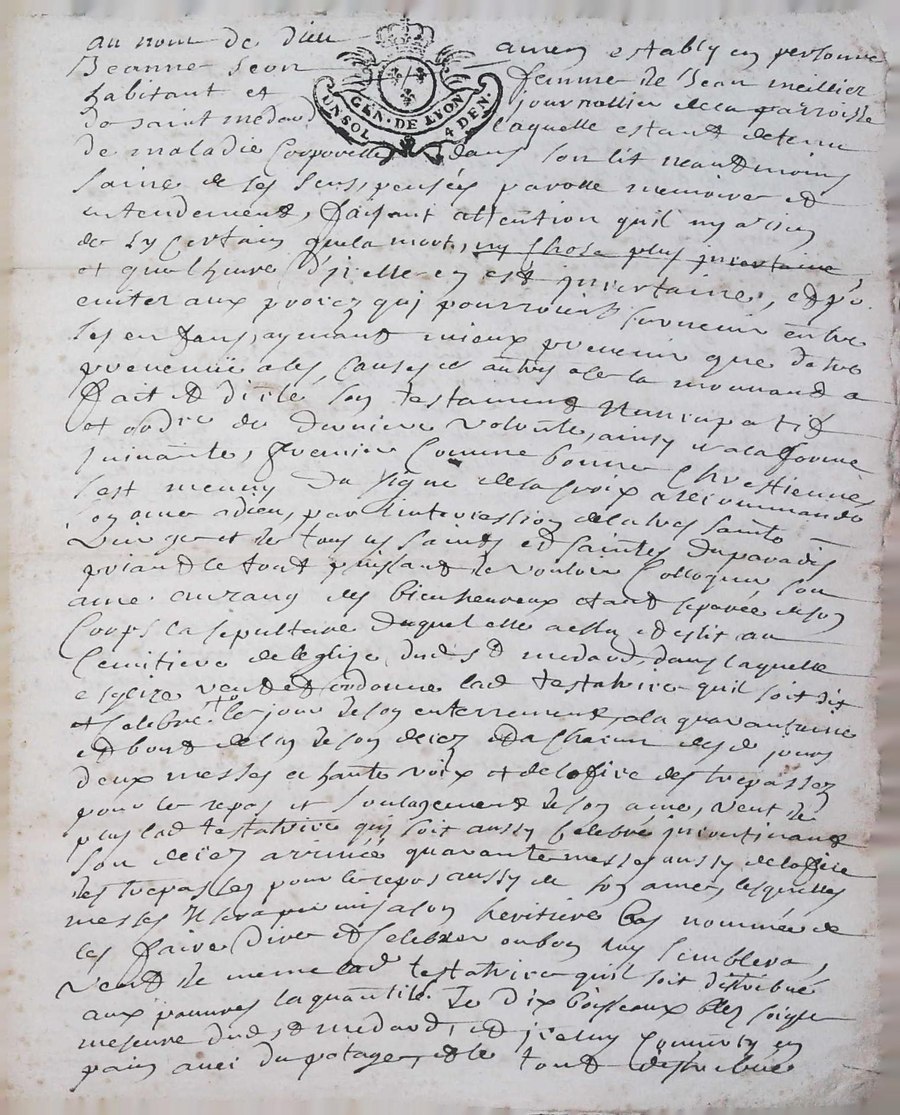 au nom de dieu amen estably en personne
Jeanne Seon femme de Jean meillier
habitant et journallier de la parroisse
de saint medard laquelle estant detenu
GEN · DE LYON
UN SOL 4 DEN ·
de maladie Corporelle dans son lit neaudmoins
saine de ses sens, pensées parolle memoire et
entendement, faisant attention quil ny a rien
de sy Certain que la mort, ny Chose plus incertaine
et que lheure d'icelle en est incertaine, et po.r
eviter aux procez qui pourroient survenir entre
ses enfans, aymant mieux prevenir que detre
prevenüe a ses Causes et autres a ce la mouvand a
fait et dicté son testament Nuncupatif
et ordre de derniere volonté, ainsy et a la forme
suivante, premier Comme bonne Chrestienne
sest munny du signe de la Croix a recommandé
son ame a dieu, par lintercession de la tres sainte
Vierge et de tous les saints et saintes du paradis
priand le tout puissand de vouloir Colloquer son
ame au rang des bienheureux etand separée de son
Corps la sepulture duquel elle a esleu et eslit au
Cemitiere de leglise dud. st medard, dans laquelle
esglize veut et ordonne lad testatrice quil soit dit
et Celebré le jour de son enterrement, a la quarantaine
et bout de lan de son decez et a Chacun des d. jours
deux messes a haute voix et de lofice des trepassez
pour le repos et soulagement de son ame, veut de
plus lad testatrice qui soit aussy Celebré incontinand
son decez arrivée quarante messes aussy de loffice
des trepassez pour le repos aussy de son ame, lesquelles
messes Il sera permis a son heritiere bas nommée de
les faire dire et Celebrer ou bon luy semblera,
veut de meme lad testatrice quil soit distribué
aux pauvres la quantité de dix boisseaux bled soigle
mesure dud. st medard, et iceluy Converty en
pain avec du potage, et le tout distribué